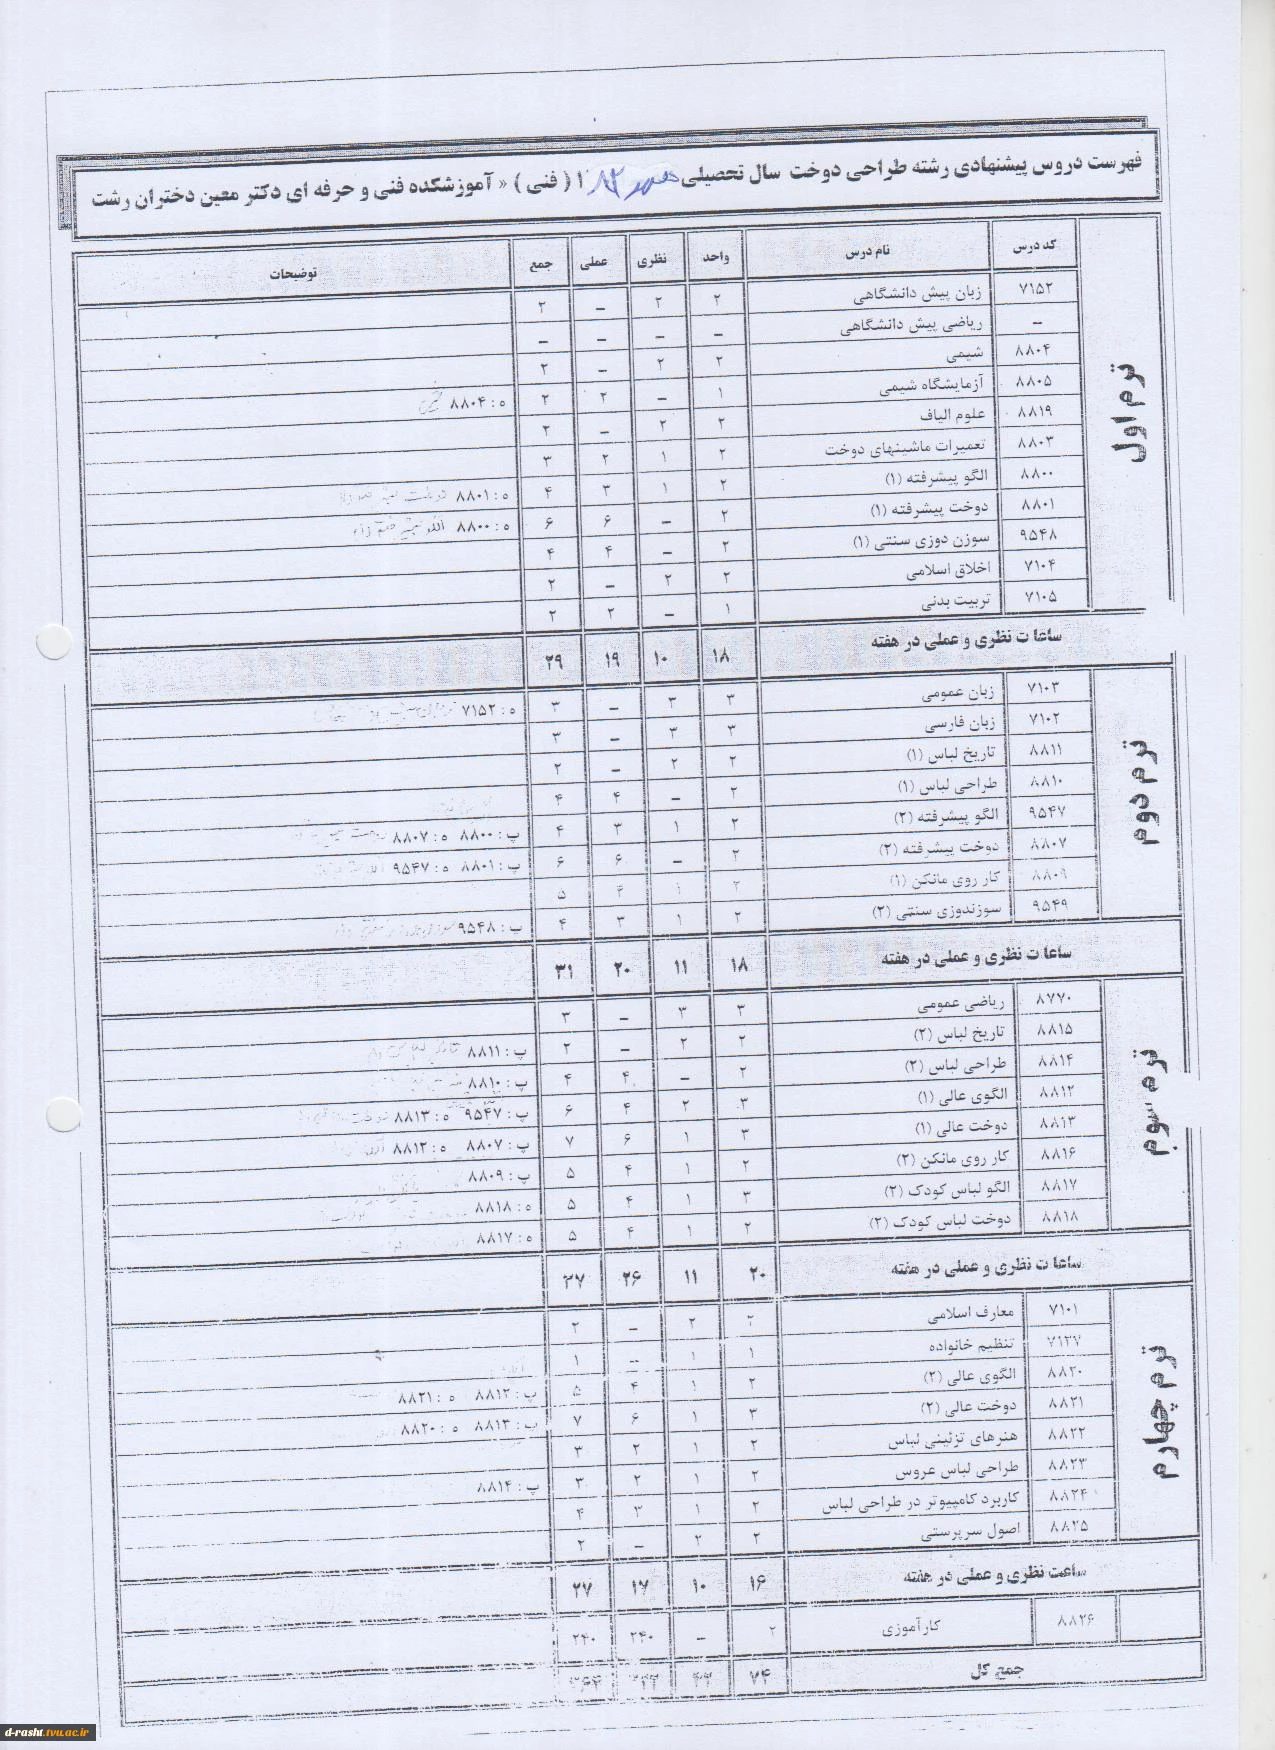 فهرست دروس پیشنهادی رشته طراحی دوخت سال تحصیلی ( فنی ) « آموزشکده فنی و حرفه ای دکتر معین دختران رشت
کد درس نام درس واحد نظری عملی جمع توضیحات
ترم اول
۷۱۵۲ زبان پیش دانشگاهی ۲ ۲ – ۲
– ریاضی پیش دانشگاهی – – – –
۸۸۰۴ شیمی ۲ ۲ – ۲
۸۸۰۵ آزمایشگاه شیمی ۱ – ۲ ۲ ه : ۸۸۰۴
۸۸۱۹ علوم الیاف ۲ ۲ – ۲
۸۸۰۳ تعمیرات ماشینهای دوخت ۲ ۱ ۲ ۳
۸۸۰۰ الگو پیشرفته (۱) ۲ ۱ ۳ ۴ ه : ۸۸۰۱
۸۸۰۱ دوخت پیشرفته (۱) ۲ – ۶ ۶ ه : ۸۸۰۰
۹۵۴۸ سوزن دوزی سنتی (۱) ۲ – ۴ ۴
۷۱۰۴ اخلاق اسلامی ۲ ۲ – ۲
۷۱۰۵ تربیت بدنی ۱ – ۲ ۲
ساعات نظری و عملی در هفته ۱۸ ۱۰ ۱۹ ۲۹
ترم دوم
۷۱۰۳ زبان عمومی ۳ ۳ – ۳ ه : ۷۱۵۲
۷۱۰۲ زبان فارسی ۳ ۳ – ۳
۸۸۱۱ تاریخ لباس (۱) ۲ ۲ – ۲
۸۸۱۰ طراحی لباس (۱) ۲ – ۴ ۴
۹۵۴۷ الگو پیشرفته (۲) ۲ ۱ ۳ ۴ پ : ۸۸۰۰ ه : ۸۸۰۷
۸۸۰۷ دوخت پیشرفته (۲) ۲ – ۶ ۶ پ : ۸۸۰۱ ه : ۹۵۴۷
۸۸۰۹ کار روی مانکن (۱) ۲ ۱ ۴ ۵
۹۵۴۹ سوزندوزی سنتی (۲) ۲ ۱ ۳ ۴ پ : ۹۵۴۸
ساعات نظری و عملی در هفته ۱۸ ۱۱ ۲۰ ۳۱
ترم سوم
۸۷۷۰ ریاضی عمومی ۳ ۳ – ۳
۸۸۱۵ تاریخ لباس (۲) ۲ ۲ – ۲ پ : ۸۸۱۱
۸۸۱۴ طراحی لباس (۲) ۲ – ۴ ۴ پ : ۸۸۱۰
۸۸۱۲ الگوی عالی (۱) ۳ ۲ ۴ ۶ پ : ۹۵۴۷ ه : ۸۸۱۳
۸۸۱۳ دوخت عالی (۱) ۳ ۱ ۶ ۷ پ : ۸۸۰۷ ه : ۸۸۱۲
۸۸۱۶ کار روی مانکن (۲) ۲ ۱ ۴ ۵ پ : ۸۸۰۹
۸۸۱۷ الگو لباس کودک (۲) ۳ ۱ ۴ ۵ ه : ۸۸۱۸
۸۸۱۸ دوخت لباس کودک (۲) ۲ ۱ ۴ ۵ ه : ۸۸۱۷
ساعات نظری و عملی در هفته ۲۰ ۱۱ ۲۶ ۳۷
ترم چهارم
۷۱۰۱ معارف اسلامی ۲ ۲ – ۲
۷۱۲۷ تنظیم خانواده ۱ ۱ – ۱
۸۸۲۰ الگوی عالی (۲) ۲ ۱ ۴ ۵ پ : ۸۸۱۲ ه : ۸۸۲۱
۸۸۲۱ دوخت عالی (۲) ۳ ۱ ۶ ۷ پ : ۸۸۱۳ ه : ۸۸۲۰
۸۸۲۲ هنرهای تزئینی لباس ۲ ۱ ۲ ۳
۸۸۲۳ طراحی لباس عروس ۲ ۱ ۲ ۳ پ : ۸۸۱۴
۸۸۲۴ کاربرد کامپیوتر در طراحی لباس ۲ ۱ ۳ ۴
۸۸۲۵ اصول سرپرستی ۲ ۲ – ۲
ساعت نظری و عملی در هفته ۱۶ ۱۰ ۱۷ ۲۷
۸۸۲۶ کارآموزی ۲ – ۲۴۰ ۲۴۰
جمع کل ۷۴
d-rasht.tvu.ac.ir